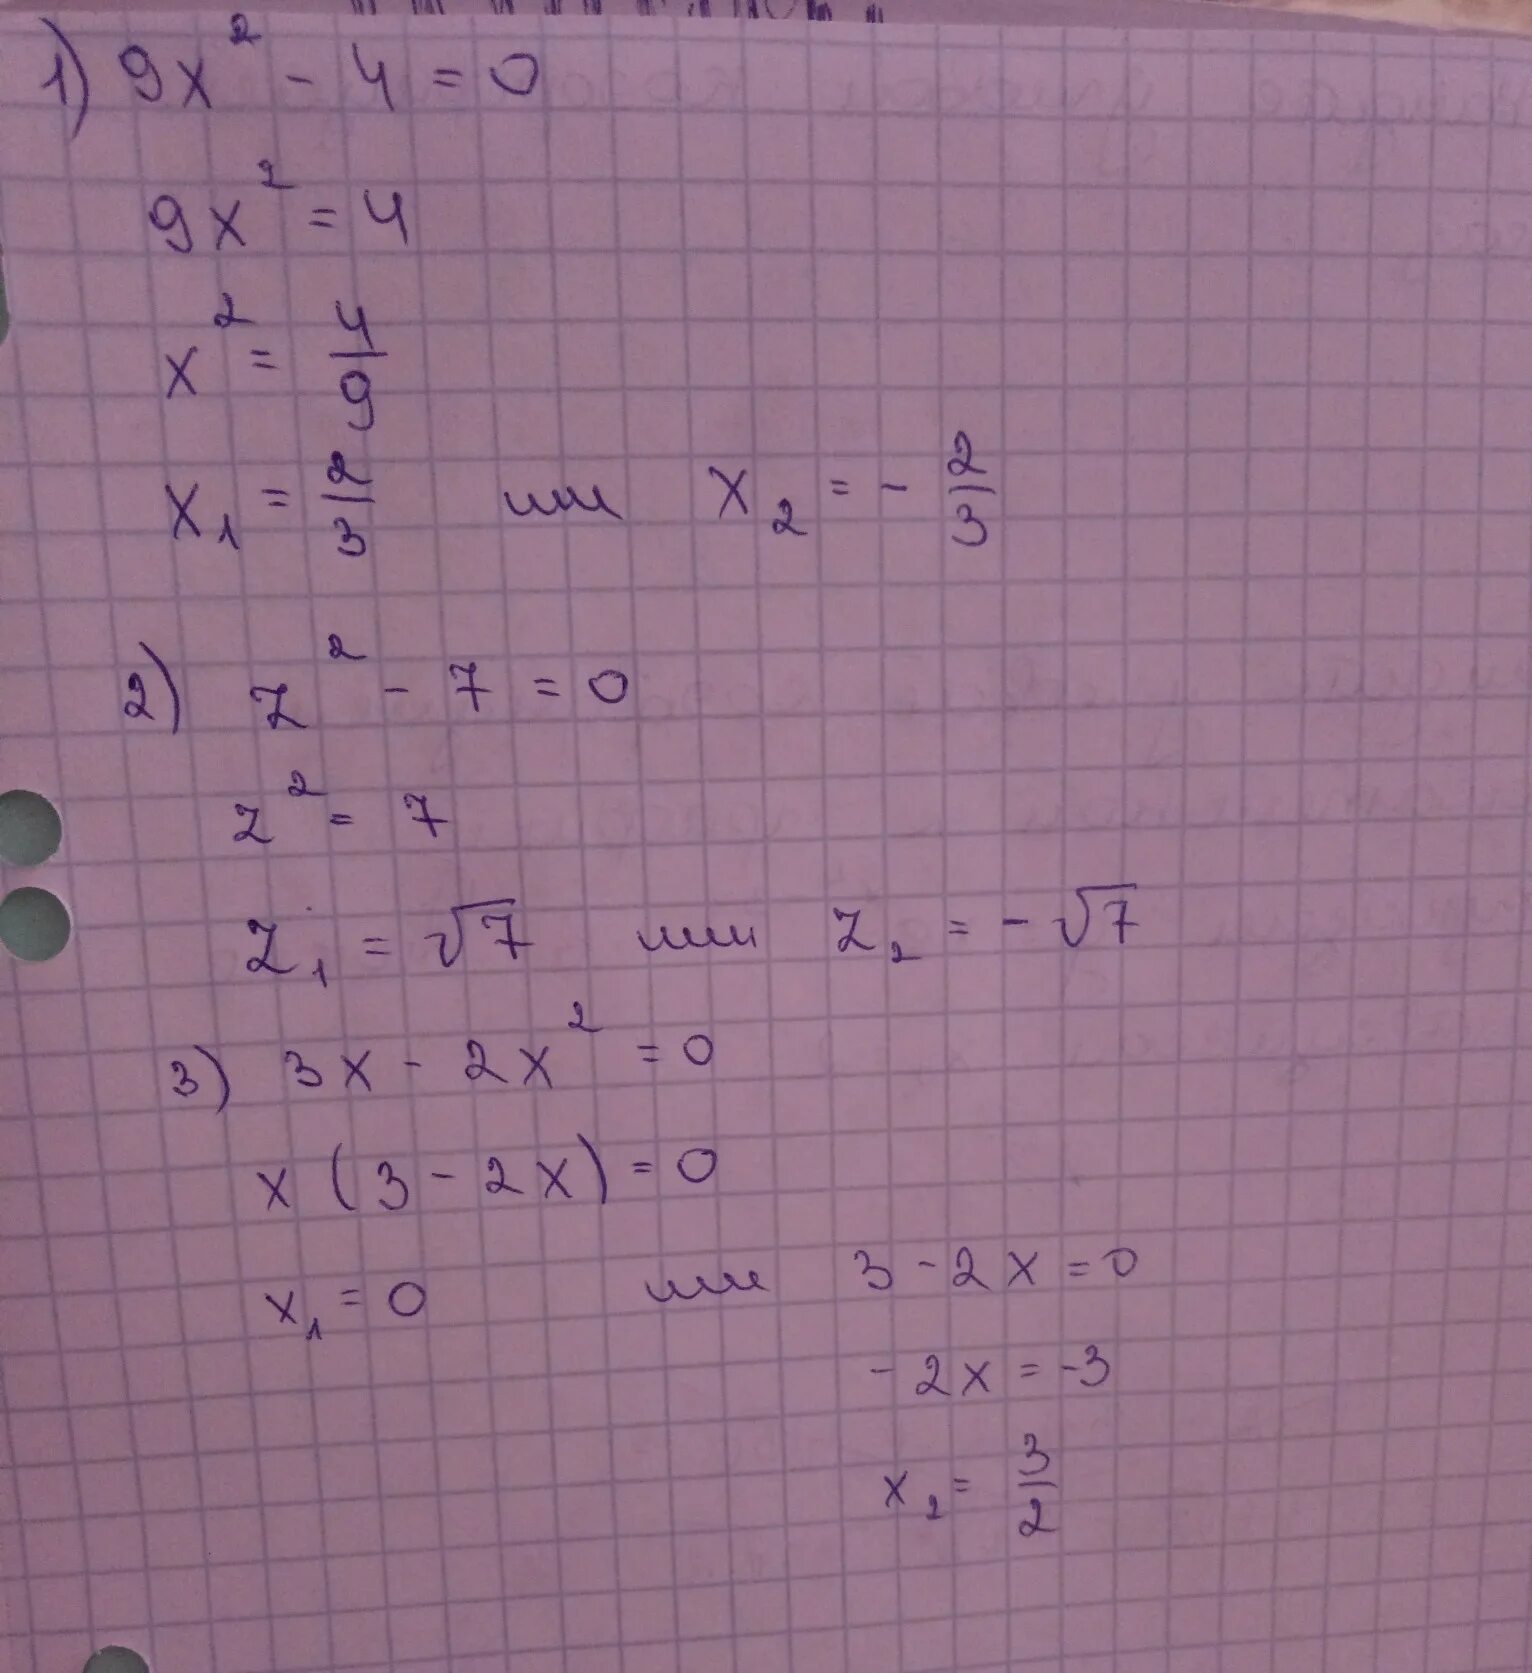 1) 9x² - 4 = 0
9x² = 4
x² = 4/9
x₁ = 2/3 или x₂ = - 2/3
2) z² - 7 = 0
z² = 7
z₁ = √7 или z₂ = - √7
3) 3x - 2x² = 0
x (3 - 2x) = 0
x₁ = 0 или 3 - 2x = 0
- 2x = -3
x₂ = 3/2